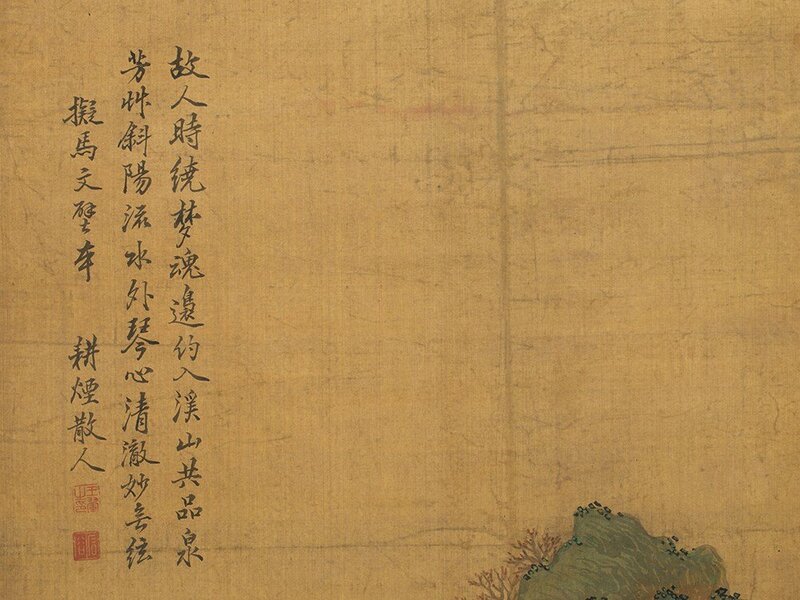 故人時繞梦魂邊約入溪山共品泉
芳艸斜陽流水外琴心清澈妙无絃
擬馬文璧本
耕煙散人